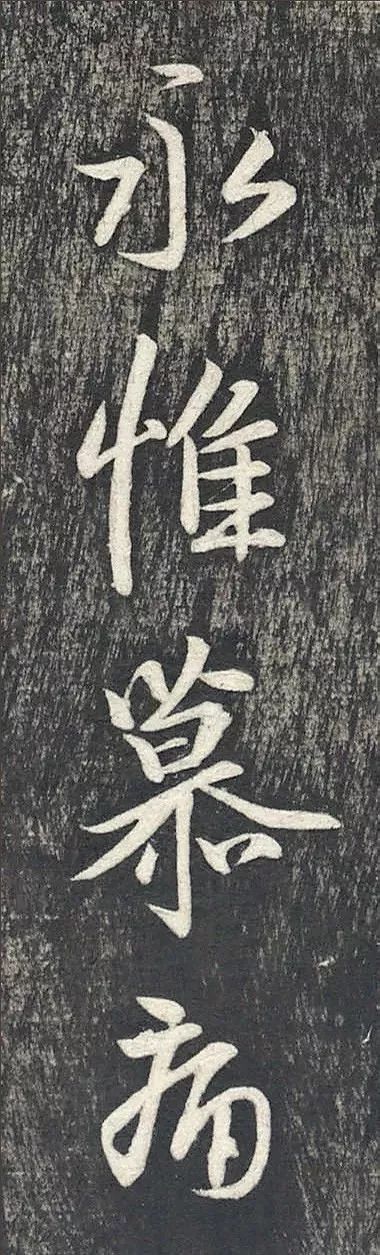 永惟慕痛